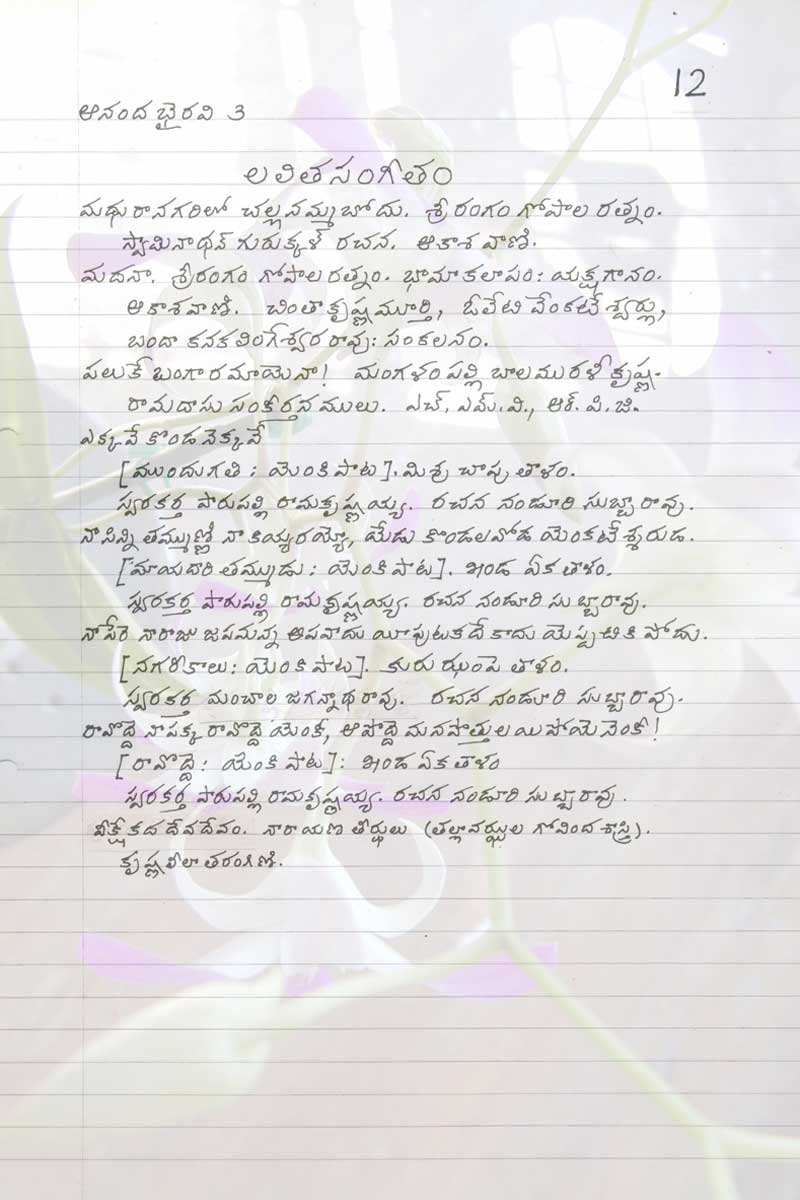 12
ఆనంద భైరవి 3
లలితసంగీతం
మథురానగరిలో చల్లనమ్మబోదు. శ్రీరంగం గోపాల రత్నం.
స్వామినాథన్ గురుక్కళ్ రచన. ఆకాశవాణి.
మదనా. శ్రీరంగం గోపాలరత్నం. భామాకలాపం: యక్షగానం.
ఆకాశవాణి. చింతా కృష్ణమూర్తి, ఓలేటి వేంకటేశ్వర్లు,
బందా కనకలింగేశ్వరరావు: సంకలనం.
పలుకే బంగారమాయెనా! మంగళంపల్లి బాలమురళీకృష్ణ.
రామదాసు సంకీర్తనములు. ఎచ్. ఎమ్. వి., ఆర్. పి. జి.
ఎక్కవే కొండనెక్కవే
[ముందుగతి: యెంకి పాట]. మిశ్ర చాపు తాళం.
స్వరకర్త పారుపల్లి రామకృష్ణయ్య. రచన నండూరి సుబ్బారావు.
నాసిన్ని తమ్ముణ్ణి నాకియ్యరయ్యో, యేడు కొండలవోడ యెంకటేశ్శరుడ.
[మాయదారి తమ్ముడు: యెంకి పాట]. ఖండ ఏక తాళం.
స్వరకర్త పారుపల్లి రామకృష్ణయ్య. రచన నండూరి సుబ్బారావు.
నాపేరె నారాజు జపమన్న ఆపవాదు యీపుటకదేకాదు యెప్పటికి పోదు.
[నగరికాలు: యెంకి పాట]. కురు ఝంపె తాళం.
స్వరకర్త మంచాల జగన్నాథరావు. రచన నండూరి సుబ్బారావు.
రావొద్దె నాపక్క రావొద్దె యెంకీ, ఆపొద్దె మనపొత్తులయిపోయెనెంకీ!
[రావొద్దె: యెంకి పాట]: ఖండ ఏక తాళం
స్వరకర్త పారుపల్లి రామకృష్ణయ్య. రచన నండూరి సుబ్బారావు.
వీక్షేకదదేవదేవం. నారాయణ తీర్థులు (తల్లావఝ్ఝుల గోవింద శాస్త్రి).
కృష్ణలీలా తరంగిణి.